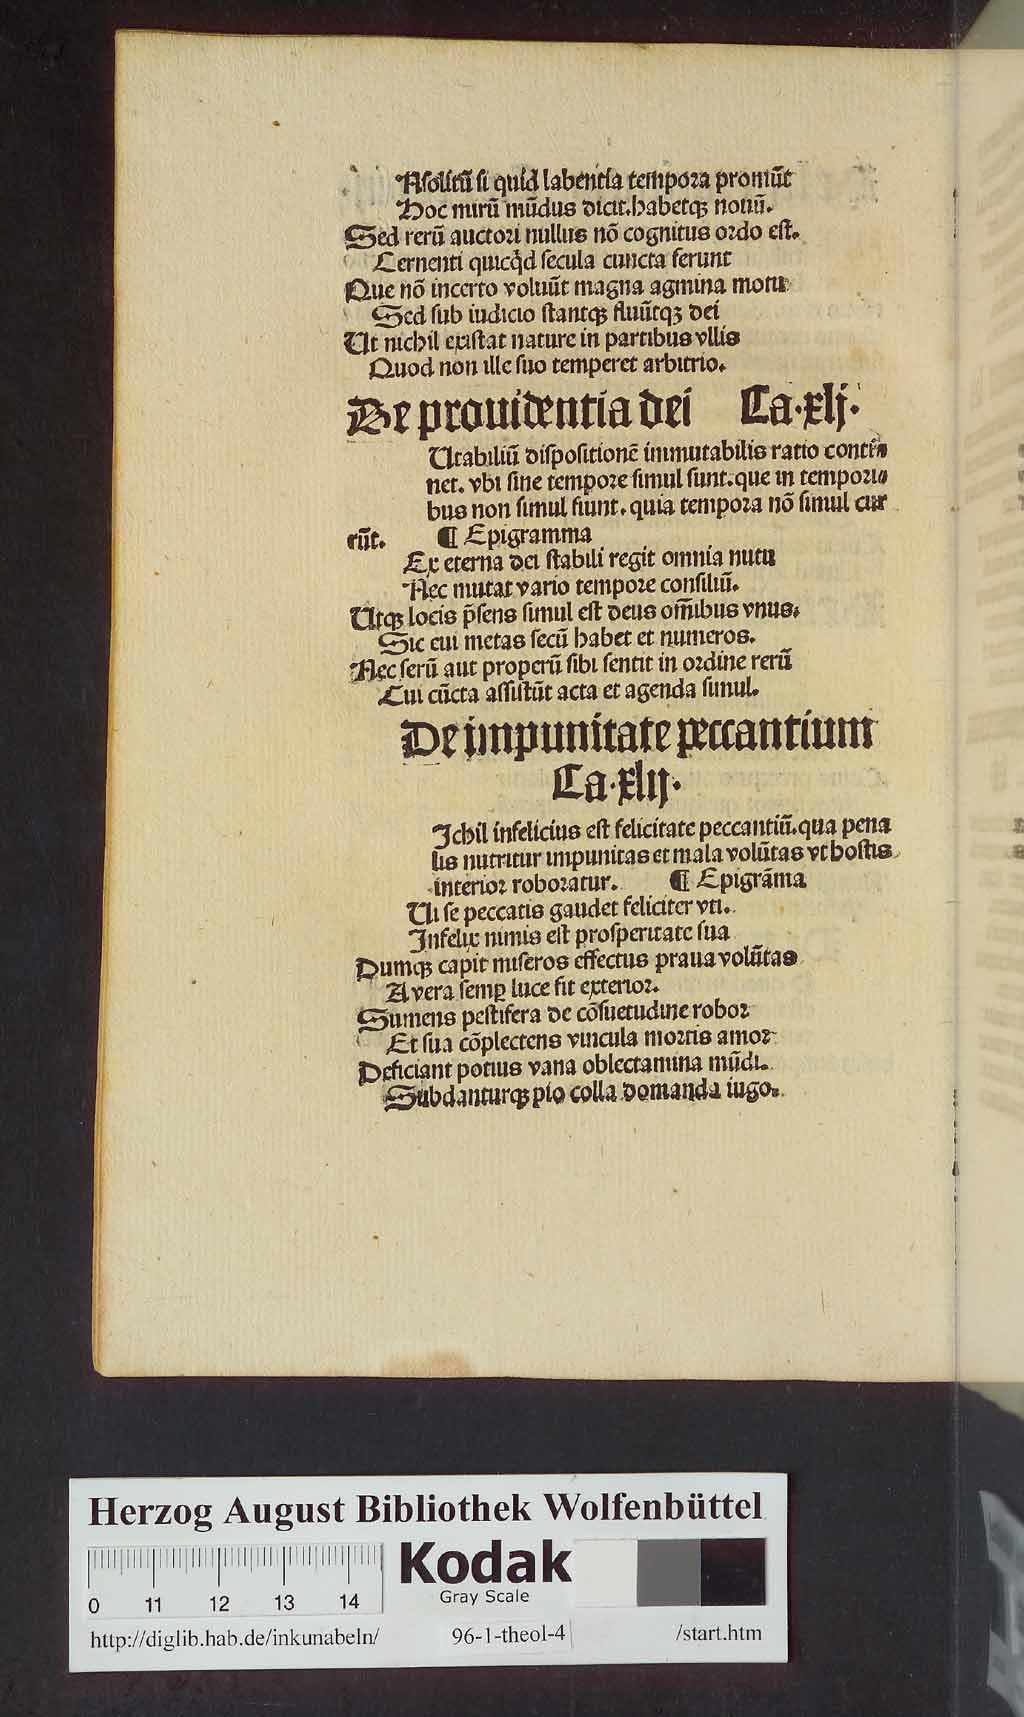 Asolitū si quid labentia tempora promūt
Hoc mirū mūdus dicit.habetqꝫ nouū.
Sed rerū auctori nullus nō cognitus ordo est.
Cernenti quicq̇d secula cuncta ferunt
Que nō incerto voluūt magna agmina motu
Sed sub iudicio stantqꝫ fluūtqꝫ dei
Ut nichil existat nature in partibus vllis
Quod non ille suo temperet arbitrio.
De prouidentia dei Ca.xlj.
Utabiliū dispositionē immutabilis ratio conti-
net. vbi sine tempore simul sunt.que in tempori-
bus non simul fiunt. quia tempora nō simul cur
rūt. ¶ Epigramma
Ex eterna dei stabili regit omnia nutu
Nec mutat vario tempore consiliū.
Utqꝫ locis p̄sens simul est deus om̄ibus vnus.
Sic eui metas secū habet et numeros.
Nec serū aut properū sibi sentit in ordine rerū
Cui cūcta assistūt acta et agenda simul.
De impunitate peccantium
Ca.xlij.
Ichil infelicius est felicitate peccantiū.qua pena
lis nutritur impunitas et mala volūtas vt hostis
interior roboratur. ¶ Epigrāma
Ui se peccatis gaudet feliciter vti.
Infelix nimis est prosperitate sua
Dumqꝫ capit miseros effectus praua volūtas
A vera semꝑ luce fit exterior.
Sumens pestifera de cōsuetudine robor
Et sua cōplectens vincula mortis amor
Deficiant potius vana oblectamina mūdi.
Subdanturqꝫ pio colla domanda iugo.
Herzog August Bibliothek Wolfenbüttel
Kodak
Gray Scale
0 11 12 13 14
http://diglib.hab.de/inkunabeln/ 96-1-theol-4 /start.htm